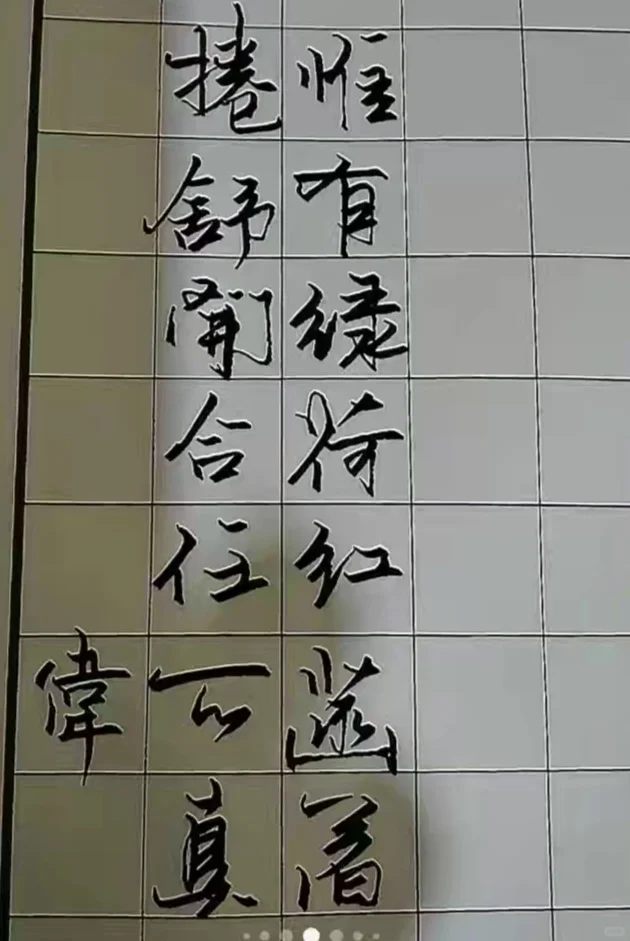 惟有绿荷红菡萏
捲舒開合任天真
偉